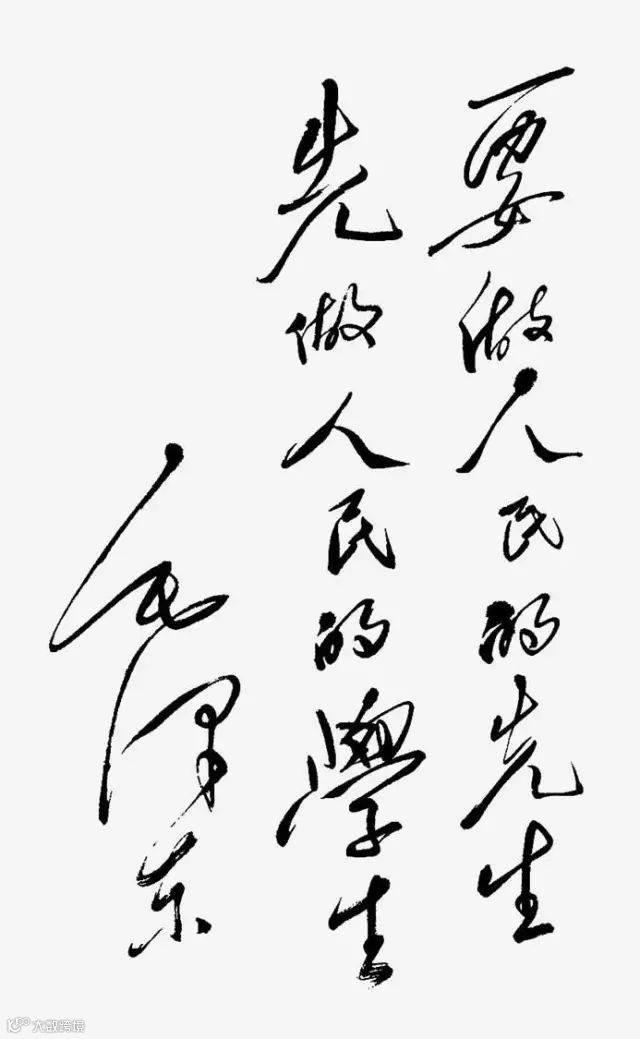 要做人民的先生
先做人民的學生
毛泽东
大数跨境